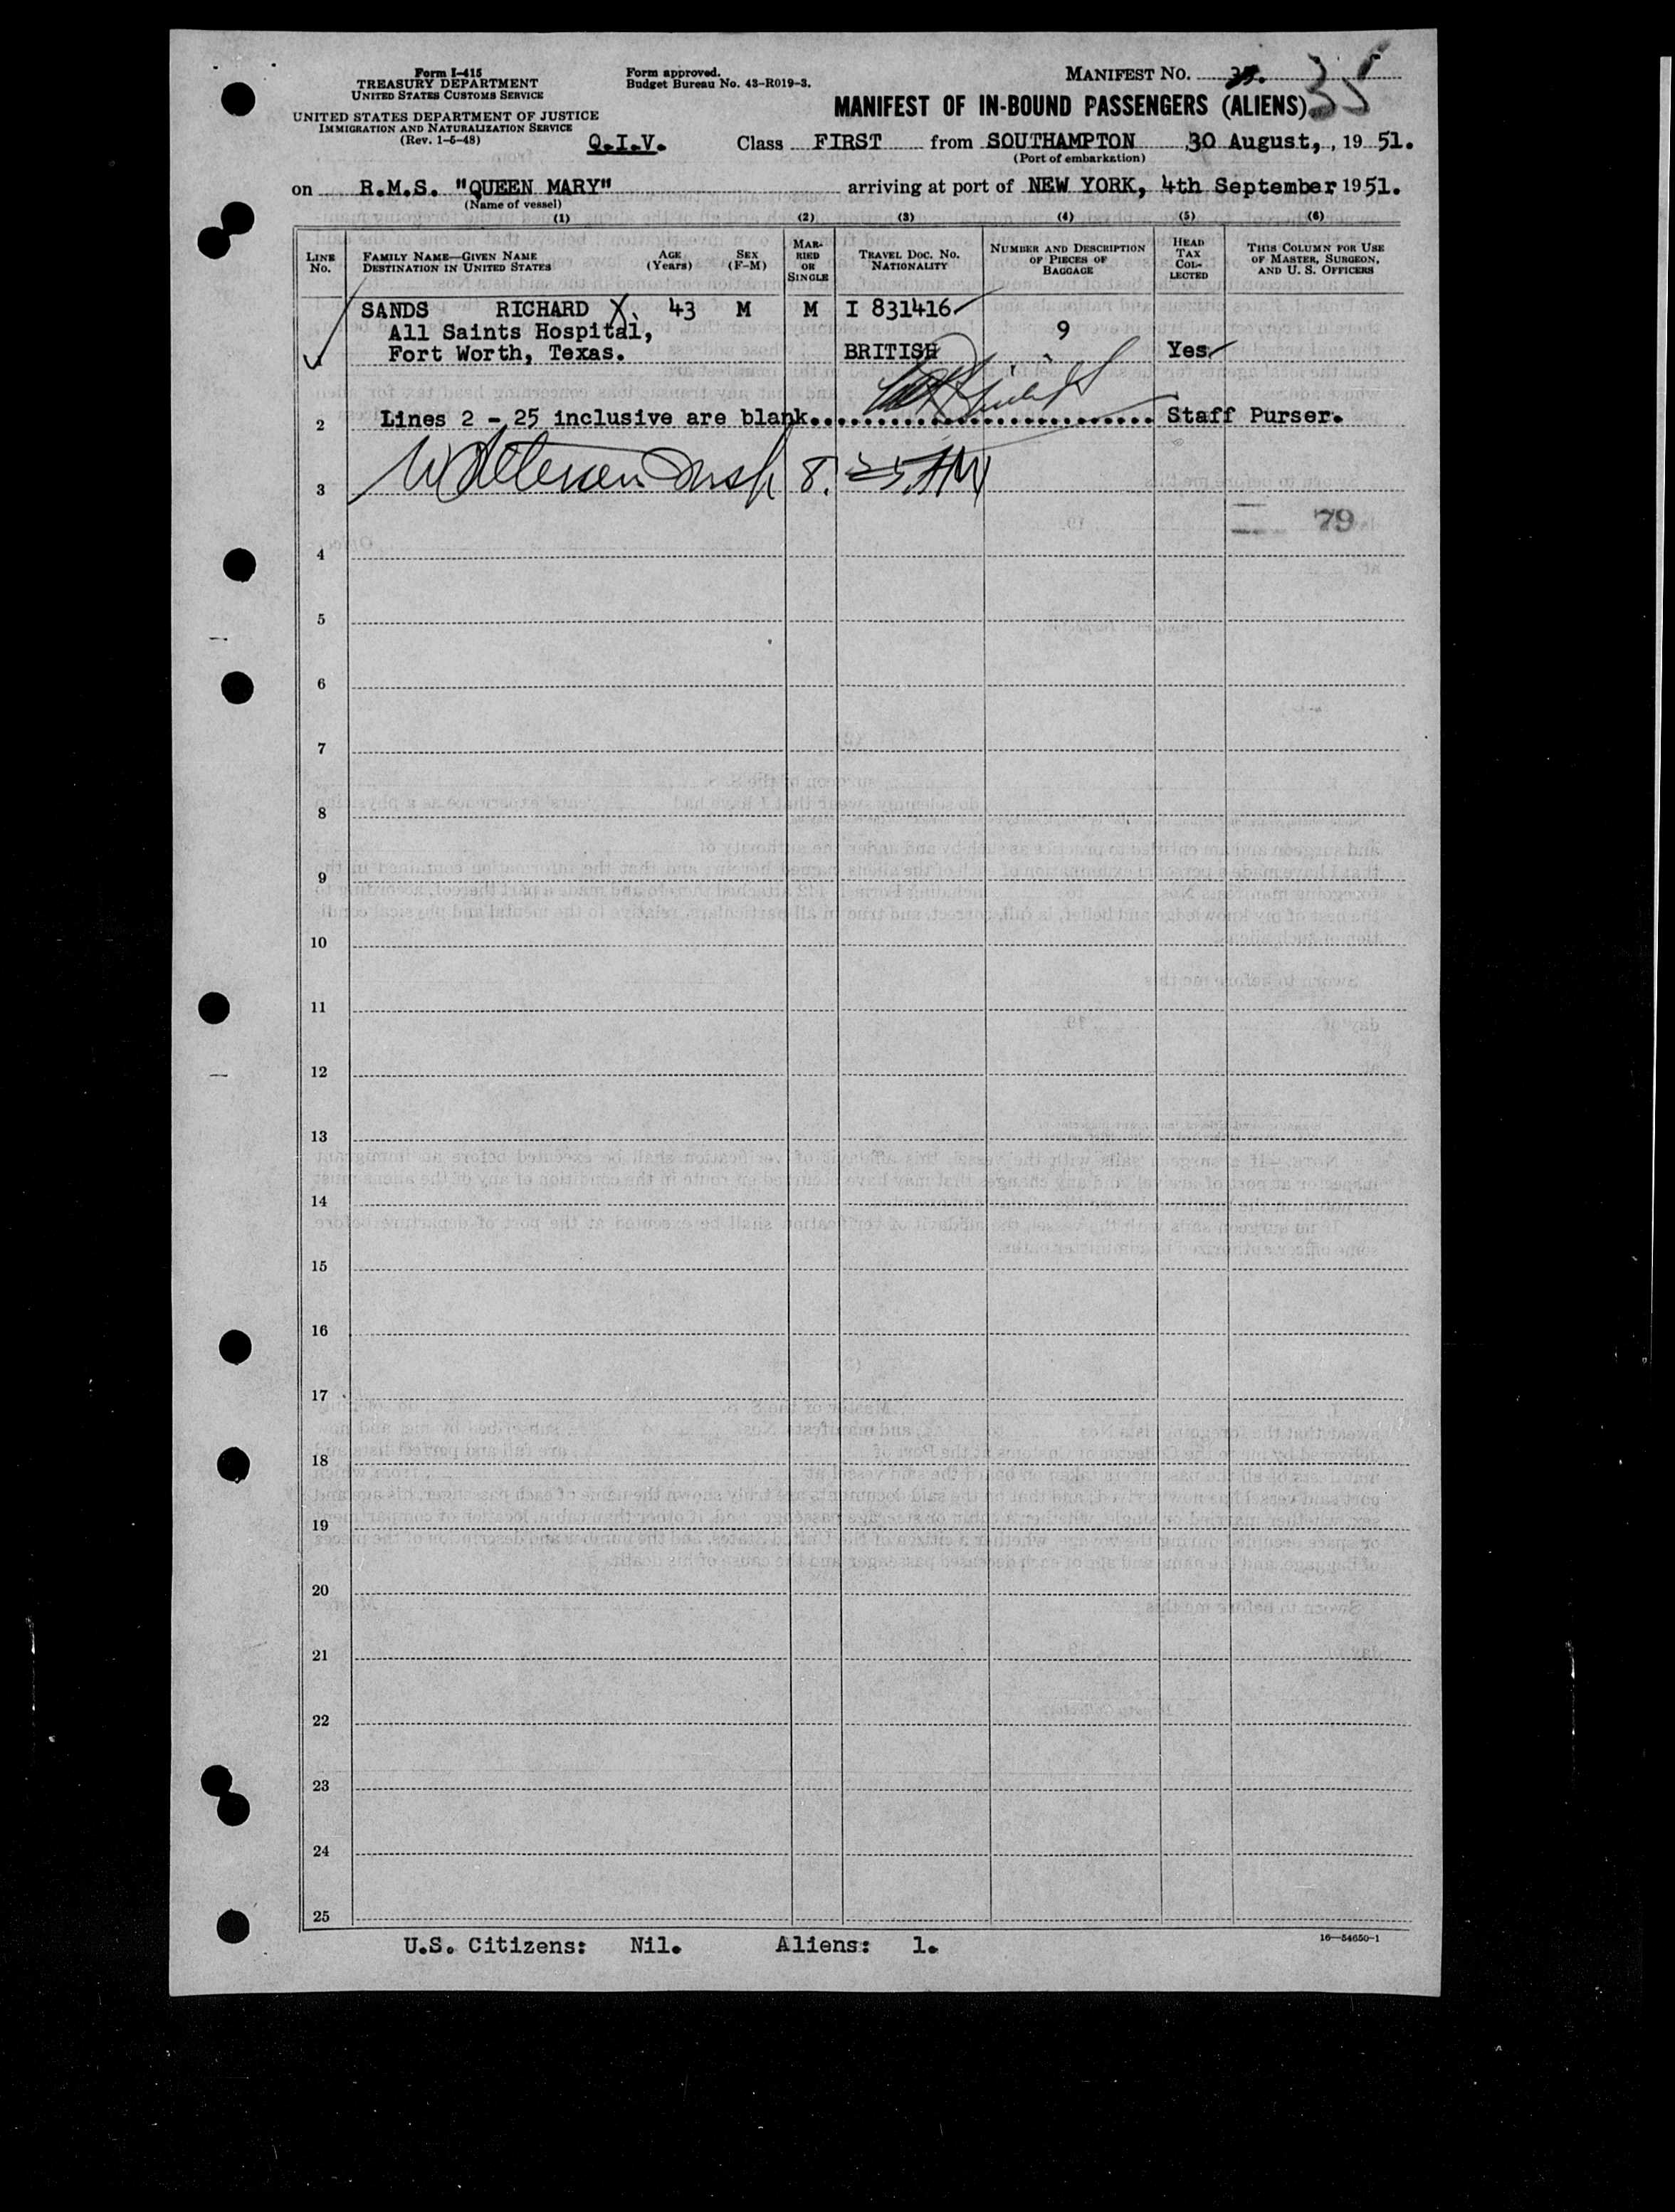 Form I-415
TREASURY DEPARTMENT
UNITED STATES CUSTOMS SERVICE
UNITED STATES DEPARTMENT OF JUSTICE
IMMIGRATION AND NATURALIZATION SERVICE
(Rev. 1-5-48)
Form approved.
Budget Bureau No. 43-R019-3.
MANIFEST NO. 35
MANIFEST OF IN-BOUND PASSENGERS (ALIENS)
Q.I.V. Class FIRST from SOUTHAMPTON 30 August, , 19 51.
(Port of embarkation)
on R.M.S. "QUEEN MARY" arriving at port of NEW YORK, 4th September 1951.
(Name of vessel)
(1) (2) (3) (4) (5) (6)
LINE No. FAMILY NAME—GIVEN NAME DESTINATION IN UNITED STATES AGE (Years) SEX (F-M) MARRIED OR SINGLE TRAVEL DOC. NO. NATIONALITY NUMBER AND DESCRIPTION OF PIECES OF BAGGAGE HEAD TAX COLLECTED THIS COLUMN FOR USE OF MASTER, SURGEON, AND U. S. OFFICERS
SANDS RICHARD X. 43 M M I 831416
All Saints Hospital, 9
1 Fort Worth, Texas. BRITISH Yes
2 Lines 2 - 25 inclusive are blank............................. Staff Purser.
3 8.25 AM
79
4
5
6
7
8
9
10
11
12
13
14
15
16
17
18
19
20
21
22
23
24
25
U.S. Citizens: Nil. Aliens: 1.
16—54650-1